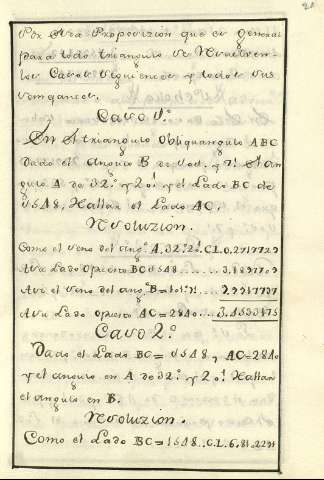 Por esta Proposizion que es general
para todo triangulo se Resuelven
los Casos siguientes y todos sus
semejantes.
Caso 1.º
En el triangulo Obliquangulo ABC
dado el Angulo B de y el An
gulo A de 32.º y 20' y el Lado BC de
1548, Hallar el Lado AC.
Resoluzion.
Como el seno del ang.º A 32.º 20'. C.L. 0.2717729
A su Lado Opuesto BC 1548 ...... 3.1897709
Asi el seno del ang.º B = ...
A su Lado opuesto AC = 2840 ... 3.4533475
Caso 2.º
Dado el Lado BC = 1548, AC = 2840
y el angulo en A de 32.º y 20' Hallar
el angulo en B.
Resoluzion.
Como el Lado BC = 1548.. C.L. 6.81.2291